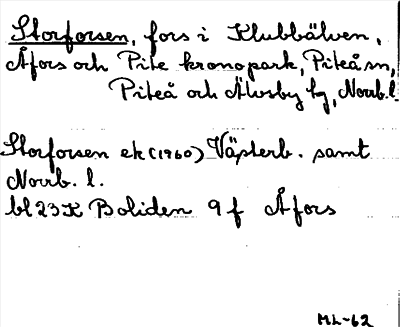 Storforsen, fors i Klubbälven,
Åfors och Pite kronopark, Piteå sn,
Piteå och Älvsby tg, Norrb. l.
Storforsen ek (1960) Västerb. samt
Norrb. l.
bl 23 K Boliden 9 f Åfors
ML-62